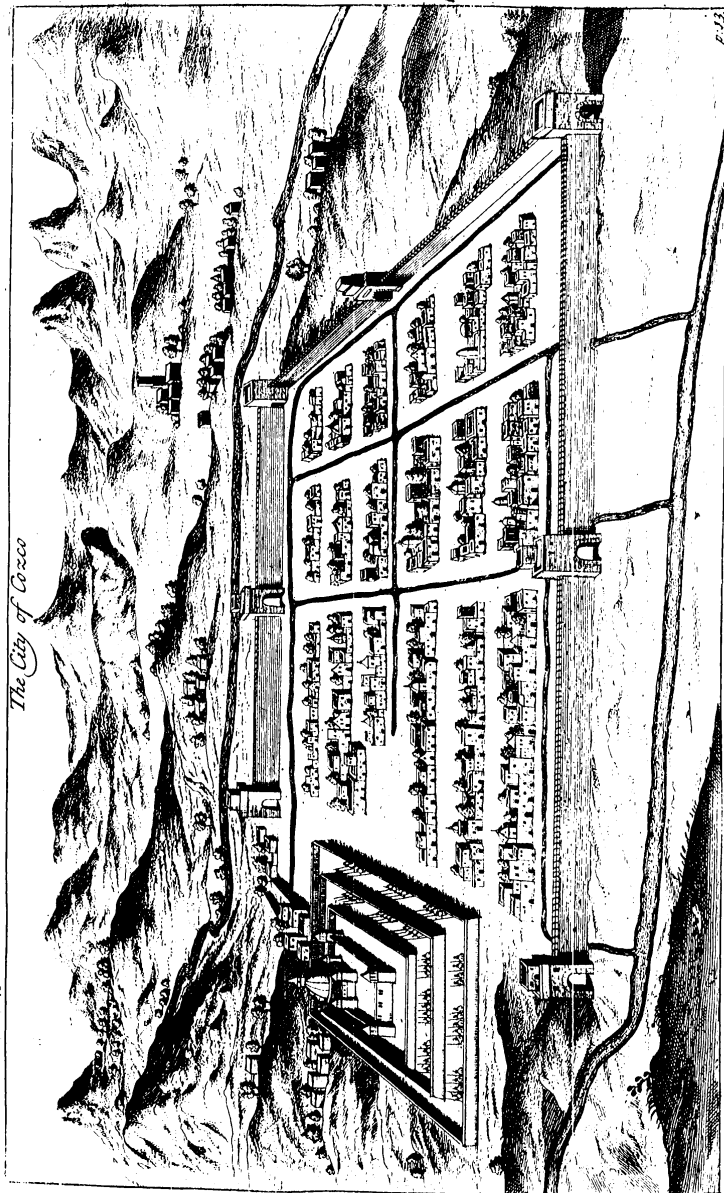 The City of Cozco
p. 13.